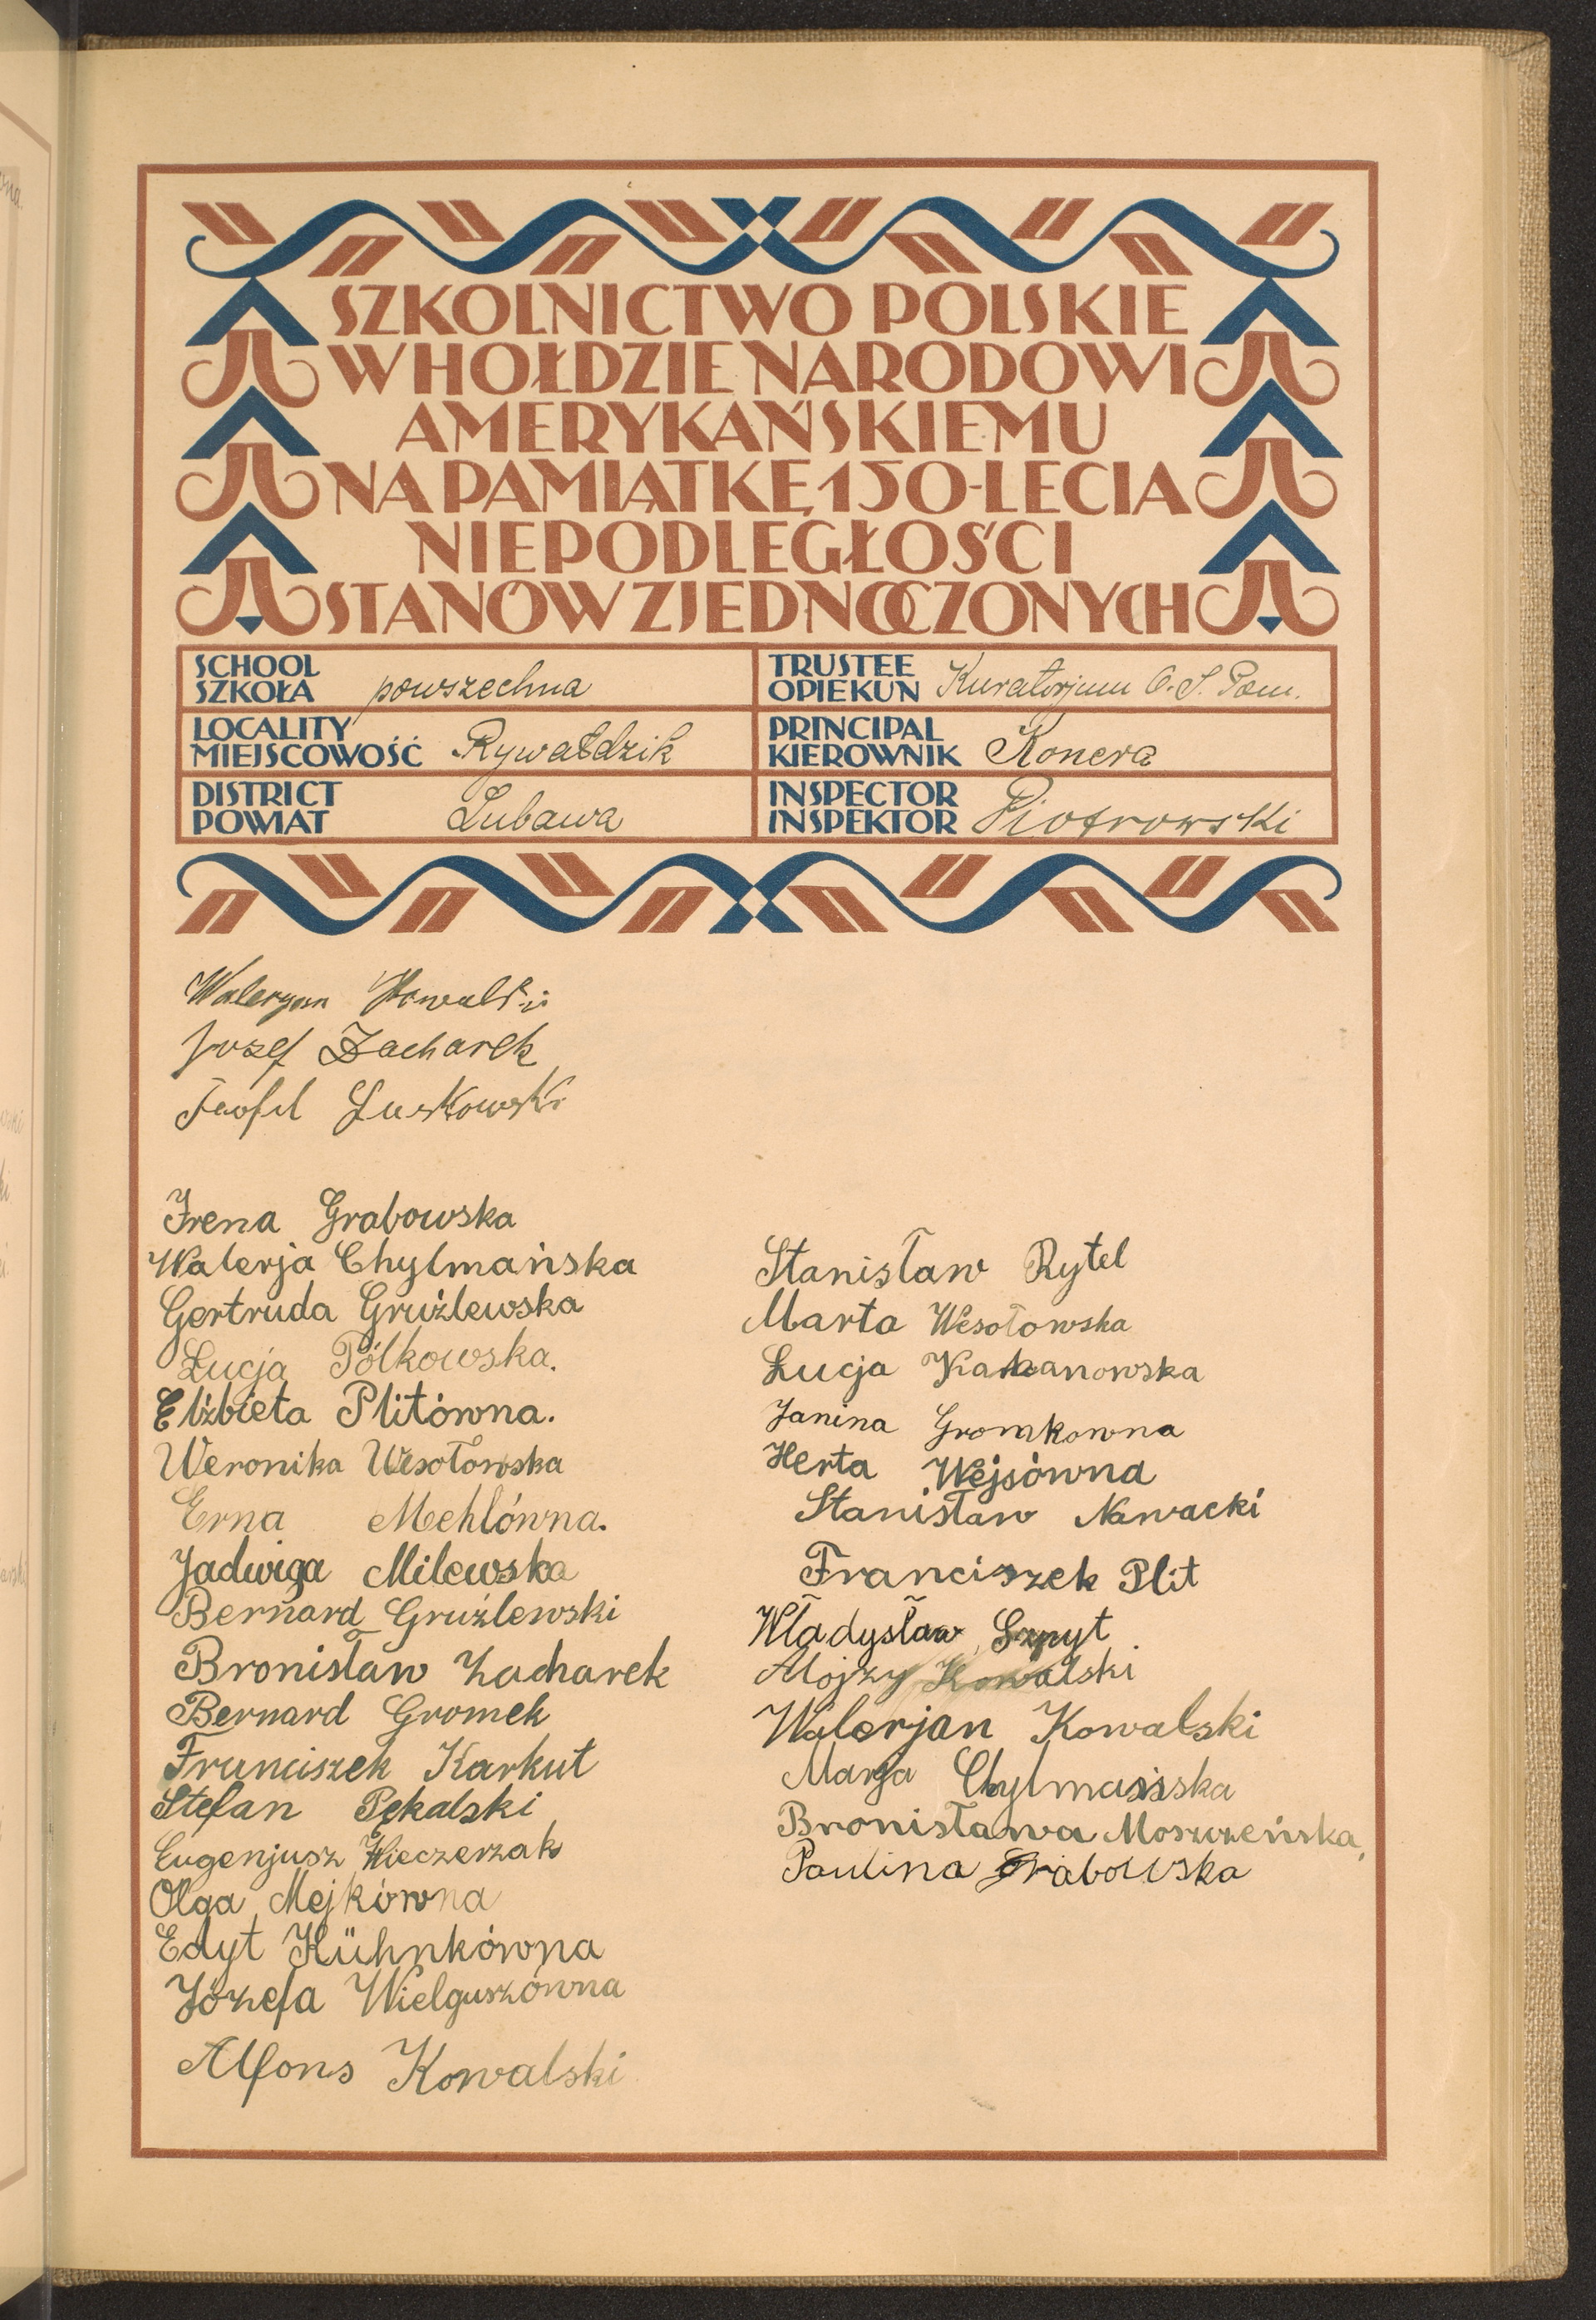 SZKOLNICTWO POLSKIE
W HOŁDZIE NARODOWI
AMERYKAŃSKIEMU
NA PAMIĄTKĘ 150-LECIA
NIEPODLEGŁOŚCI
STANÓW ZJEDNOCZONYCH
SCHOOL
SZKOŁA powszechna
TRUSTEE
OPIEKUN Kuratorjum O. S. Pom.
LOCALITY
MIEJSCOWOŚĆ Rywałdzik
PRINCIPAL
KIEROWNIK Konera
DISTRICT
POWIAT Lubawa
INSPECTOR
INSPEKTOR Piotrowski
Waleryan Kowalski
Jozef Zacharek
Teofil Luskowski
Irena Grabowska
Walerja Chylmańska
Gertruda Gruźlewska
Łucja Półkowska.
Elżbieta Plitówna.
Weronika Wesołowska
Erna Mehlówna.
Jadwiga Milewska
Bernard Gruźlewski
Bronisław Zacharek
Bernard Gromek
Franciszek Karkut
Stefan Pękalski
Eugenjusz Wieczerzak
Olga Mejkówna
Edyt Kühnkówna
Józefa Wielguszówna
Alfons Kowalski
Stanisław Rytel
Marta Wesołowska
Łucja
Janina Gromkowna
Herta Wejsówna
Stanisław Nawacki
Franciszek Plit
Władysław Szpyt
Alojzy Kowalski
Walerjan Kowalski
Marja Chylmańska
Bronisława Moszczeńska,
Paulina Grabowska